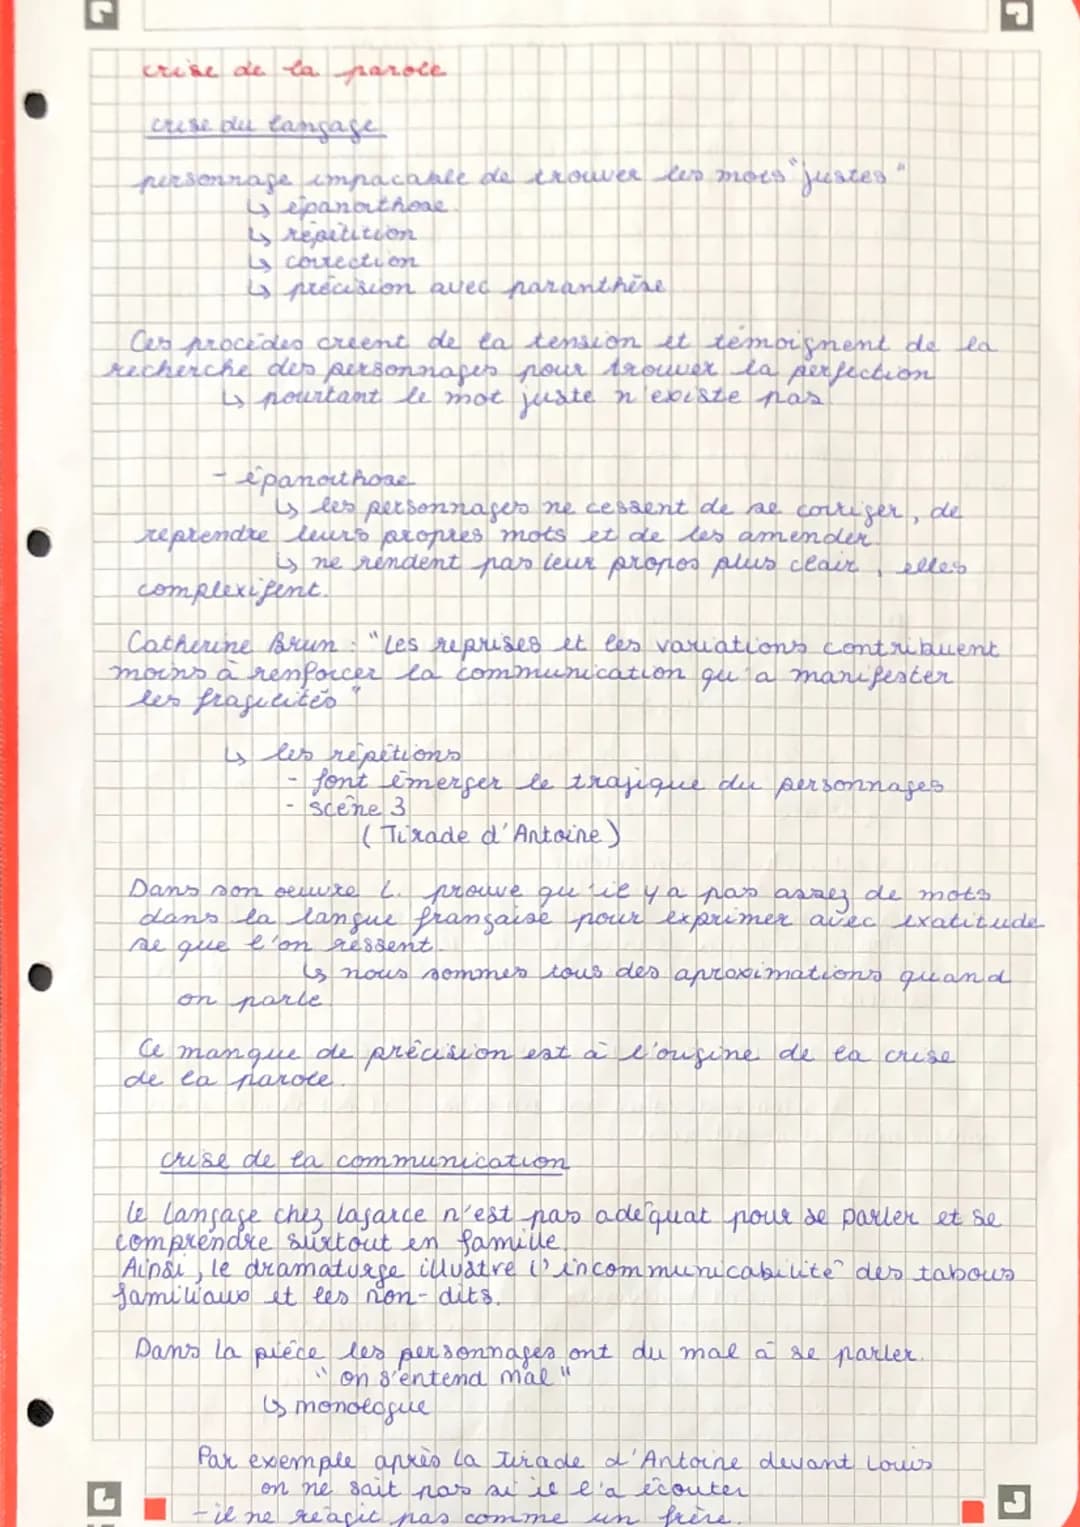 crise de la parole
crise du langage
personnage impacable de trouver les mots "justes"
↳ épanorthose
↳ répétition
↳ correction
↳ précision avec paranthèse
Ces procédés créent de la tension et témoignent de la
recherche des personnages pour trouver la perfection
↳ pourtant le mot juste n'existe pas
- épanorthose
↳ les personnages ne cessent de se corriger, de
reprendre leurs propres mots et de les amender.
↳ ne rendent pas leur propos plus clair, elles
complexifent.
Catherine Brun : "Les reprises et les variations contribuent
moins à renforcer la communication qu'a manifester
les fragilités"
↳ les répétions
- font émerger le trajique du personnages
- scène 3
(Tirade d'Antoine)
Dans son oeuvre L. prouve qu'il y a pas assez de mots
dans la langue française pour exprimer avec exatitude
se que l'on ressent.
↳ nous sommes tous des aproximations quand
on parle
Ce manque de précision est à l'origine de la crise
de la parole.
crise de la communication
Le langage chez Lagarce n'est pas adéquat pour se parler et se
comprendre surtout en famille.
Ainsi, le dramaturge illustre l'incommunicabilité des tabous
familiaux et les non-dits.
Dans la pièce les personnages ont du mal à se parler.
"on s'entend mal"
↳ monologue
Par exemple après la tirade d'Antoine devant Louis
on ne sait pas si il l'a écouter
- il ne réagit pas comme un frère.